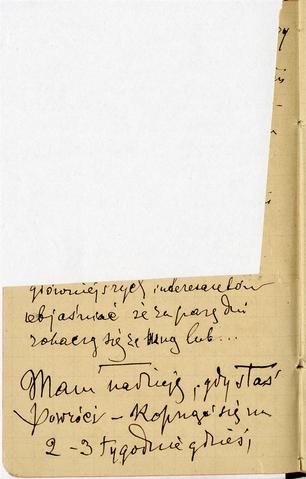 główniejszych interesantów
objaśniać że za parę dni
zobaczą się ze mną lub...
Mam nadzieję, gdy Staś
powróci – kopnąć się na
2–3 tygodnie gdzieś,